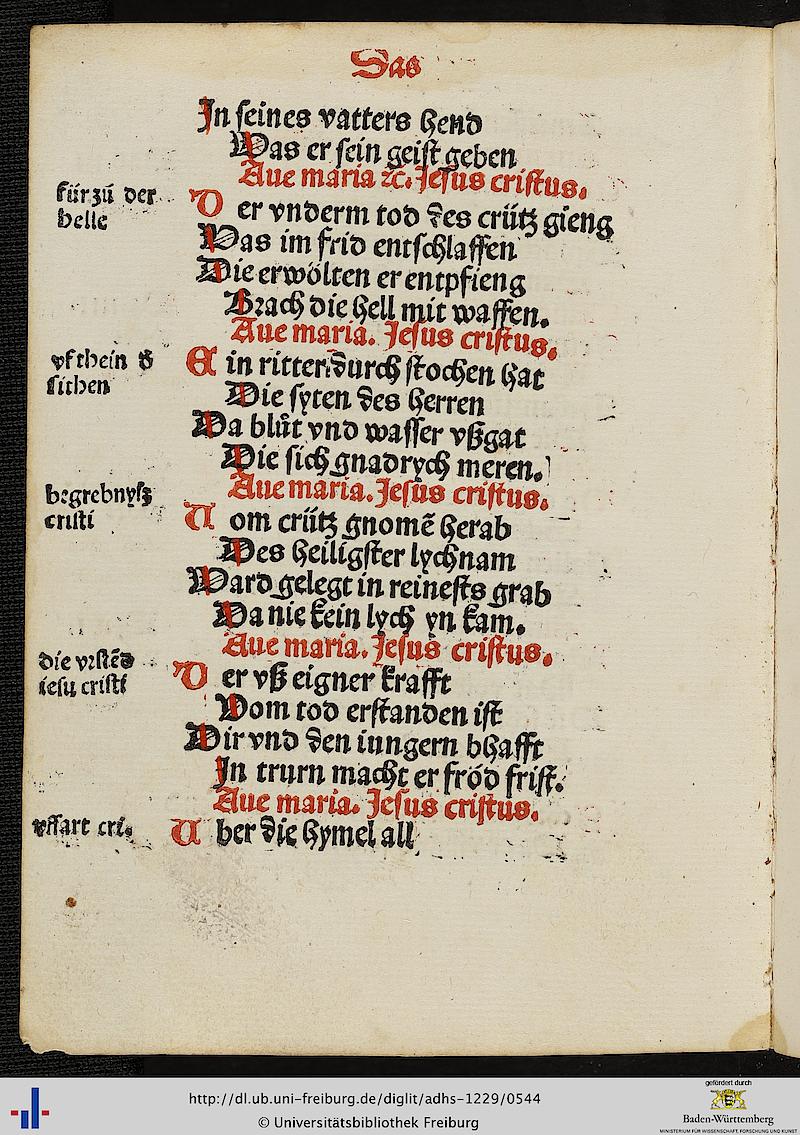 Das
In seines vatters hend
Was er sein geist geben
Aue maria ⁊c. Jesus cristus.
für zů der
helle
Der vnderm tod des crütz gieng
Was im frid entschlaffen
Die erwölten er entpfieng
Brach die hell mit waffen.
Aue maria. Jesus cristus.
vf thein
sithen
Ein ritter durch stochen hat
Die syten des herren
Da blůt vnd wasser vßgat
Die sich gnadrych meren.
Aue maria. Jesus cristus.
begrebnysz
cristi
Vom crütz gnomē herab
Des heiligster lychnam
Ward gelegt in reinests grab
Da nie kein lych yn kam.
Aue maria. Jesus cristus.
die vrstēd
iesu cristi
Der vß eigner krafft
Vom tod erstanden ist
Dir vnd den iungern bhafft
In trurn macht er fröd frist.
Aue maria. Jesus cristus.
vffart cri.
Uber die hymel all
http://dl.ub.uni-freiburg.de/diglit/adhs-1229/0544
© Universitätsbibliothek Freiburg
gefördert durch
Baden-Württemberg
MINISTERIUM FÜR WISSENSCHAFT, FORSCHUNG UND KUNST